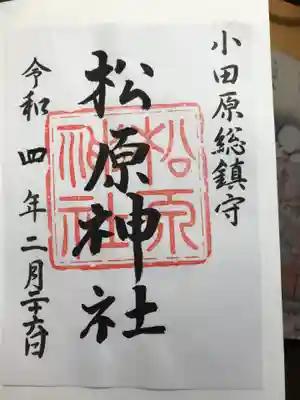 小田原総鎮守
松原神社
松原
神社
令和四年二月二十六日